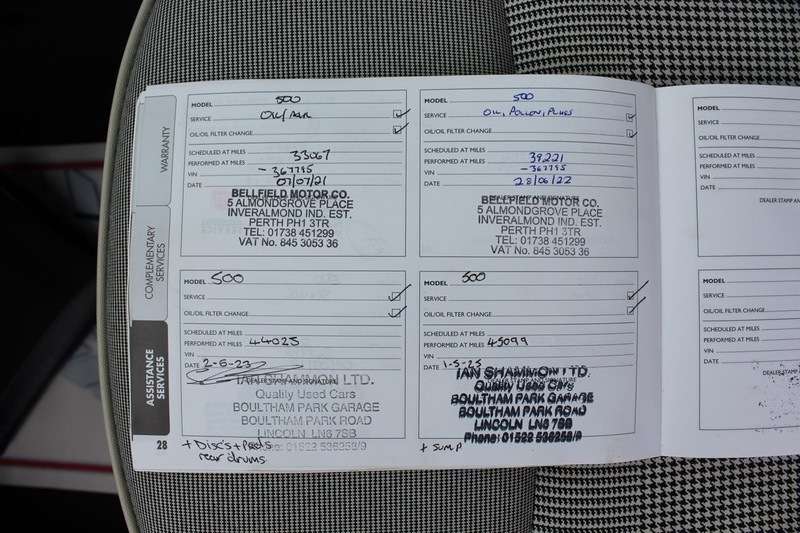 WARRANTY
COMPLEMENTARY
SERVICES
ASSISTANCE
SERVICES
MODEL 500
SERVICE OIL/AIR
OIL/OIL FILTER CHANGE
SCHEDULED AT MILES
PERFORMED AT MILES 33067
VIN - 367795
DATE 07/07/21
BELLFIELD MOTOR CO.
5 ALMONDGROVE PLACE
INVERALMOND IND. EST.
PERTH PH1 3TR
TEL: 01738 451299
VAT No. 845 3053 36
MODEL 500
SERVICE OIL, POLLEN, PLUGS
OIL/OIL FILTER CHANGE
SCHEDULED AT MILES
PERFORMED AT MILES 39221
VIN - 367795
DATE 28/06/22
DEALER STAMP AND SIGNATURE
BELLFIELD MOTOR CO.
5 ALMONDGROVE PLACE
INVERALMOND IND. EST.
PERTH PH1 3TR
TEL: 01738 451299
VAT No. 845 3053 36
MODEL
SERVICE
OIL/OIL FILTER CHANGE
SCHEDULED AT MILES
PERFORMED AT MILES
VIN
DATE
DEALER STAMP AND
MODEL 500
SERVICE
OIL/OIL FILTER CHANGE
SCHEDULED AT MILES
PERFORMED AT MILES 44025
VIN
DATE 2-6-23
DEALER STAMP AND SIGNATURE
IAN SHAMMON LTD.
Quality Used Cars
BOULTHAM PARK GARAGE
BOULTHAM PARK ROAD
LINCOLN LN6 7SB
Phone: 01522 536258/9
+ Discs + Pads
rear drums.
28
MODEL 500
SERVICE
OIL/OIL FILTER CHANGE
SCHEDULED AT MILES
PERFORMED AT MILES 45099
VIN
DATE 1-5-25
IAN SHAMMON LTD.
Quality Used Cars
BOULTHAM PARK GARAGE
BOULTHAM PARK ROAD
LINCOLN LN6 7SB
Phone: 01522 536258/9
+ sump
MODEL
SERVICE
OIL/OIL FILTER CHANGE
SCHEDULED AT MILES
PERFORMED AT MILES
VIN
DATE
DEALER STAMP